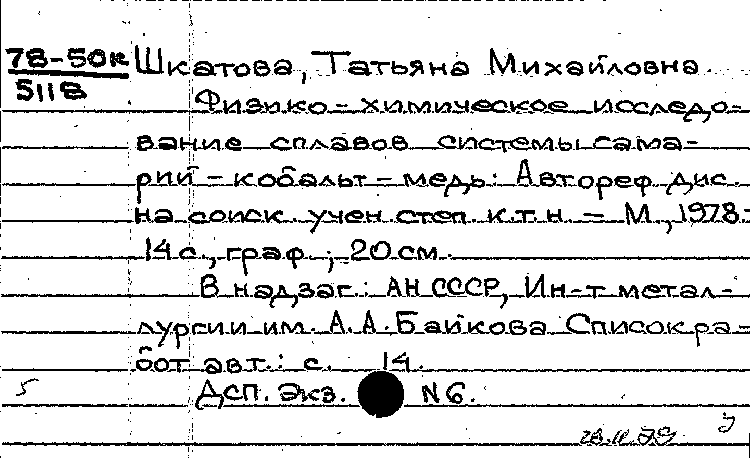 78-50к Шкатова, Татьяна Михайловна.
5118
Физико-химическое исследо-
вание сплавов системы сама-
рий - кобальт - медь: Автореф. дис.
на соиск. учен. степ. к.т.н. - М., 1978.-
14 с., граф.; 20 см.
В надзаг.: АН СССР, Ин-т метал-
лургии им. А. А. Байкова Список ра-
бот авт.: с. 14.
5 Дсп. Экз. N6.